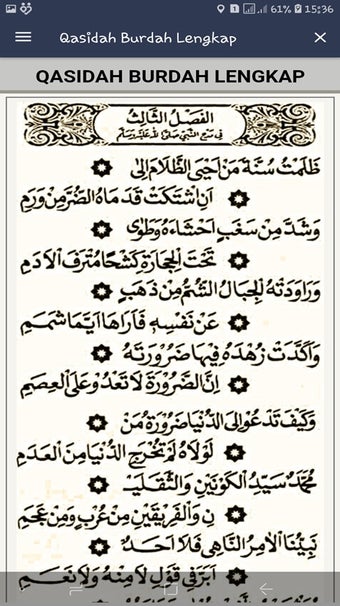 61% 15:36
Qasidah Burdah Lengkap
QASIDAH BURDAH LENGKAP
الفصل الثالث
في مدح النبي صلى الله عليه وسلم
ظَلَمْتُ سُنَّةَ مَنْ اَحْيَى الظَّلَامَ اِلَى
اَنِ اشْتَكَتْ قَدَمَاهُ الضُّرَّ مِنْ وَرَمِ
وَشَدَّ مِنْ سَغَبٍ اَحْشَاءَهُ وَطَوٰى
تَحْتَ الْحِجَارَةِ كَشْحًا مُتْرَفَ الْاَدَمِ
وَرَاوَدَتْهُ الْجِبَالُ الشُّمُّ مِنْ ذَهَبٍ
عَنْ نَفْسِهِ فَاَرَاهَا اَيَّمَا شَمَمِ
وَاَكَّدَتْ زُهْدَهُ فِيهَا ضَرُورَتُهُ
اِنَّ الضَّرُورَةَ لَا تَعْدُو عَلَى الْعِصَمِ
وَكَيْفَ تَدْعُو اِلَى الدُّنْيَا ضَرُورَةُ مَنْ
لَوْلَاهُ لَمْ تَخْرُجِ الدُّنْيَا مِنَ الْعَدَمِ
مُحَمَّدٌ سَيِّدُ الْكَوْنَيْنِ وَالثَّقَلَيْـ
ـنِ وَالْفَرِيقَيْنِ مِنْ عُرْبٍ وَمِنْ عَجَمِ
نَبِيُّنَا الْاٰمِرُ النَّاهِي فَلَا اَحَدٌ
اَبَرَّ فِي قَوْلِ لَا مِنْهُ وَلَا نَعَمِ